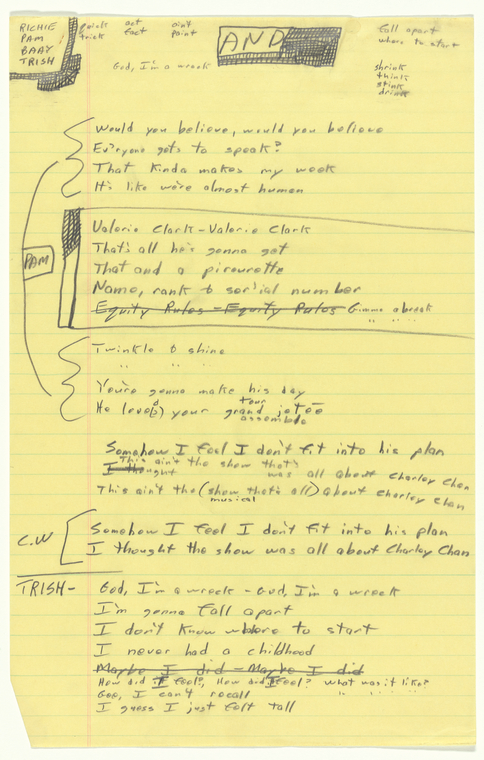 RICHIE
PAM
BAAY
TRISH
quick
trick
act
fact
ain't
paint
God, I'm a wreck
AND
fall apart
where to start
shrink
think
stink
drink
Would you believe, would you believe
Everyone gets to speak?
That kinda makes my week
It's like we're almost human
PAM
Valerie Clark - Valerie Clark
That's all he's gonna get
That and a pirouette
Name, rank & serial number
Equity Rules - Equity Rules Gimme a break
" " " "
Twinkle & shine
" " "
You're gonna make his day
tour
He love(s) your grand jetée
assemble
Somehow I feel I don't fit into his plan
This ain't the show that's
I thought was all about Charley Chan
This ain't the (show that's all) about Charley Chan
musical
C.W
Somehow I feel I don't fit into his plan
I thought the show was all about Charley Chan
TRISH - God, I'm a wreck - God, I'm a wreck
I'm gonna fall apart
I don't know where to start
I never had a childhood
Maybe I did - Maybe I did
How did I feel?, How did I feel? What was it like?
Gee, I can't recall " " " "
I guess I just felt tall